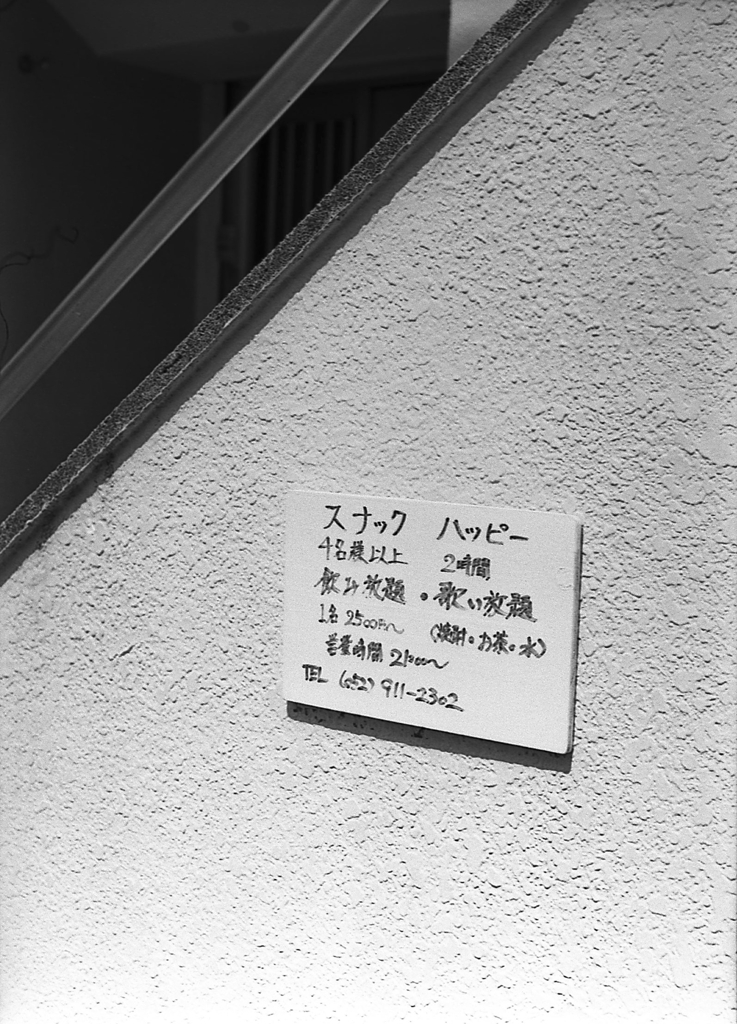 スナック ハッピー
4名様以上 2時間
飲み放題・歌い放題
1名 2500円〜 (焼酎・お茶・水)
営業時間 21:00〜
TEL (052) 911-2302